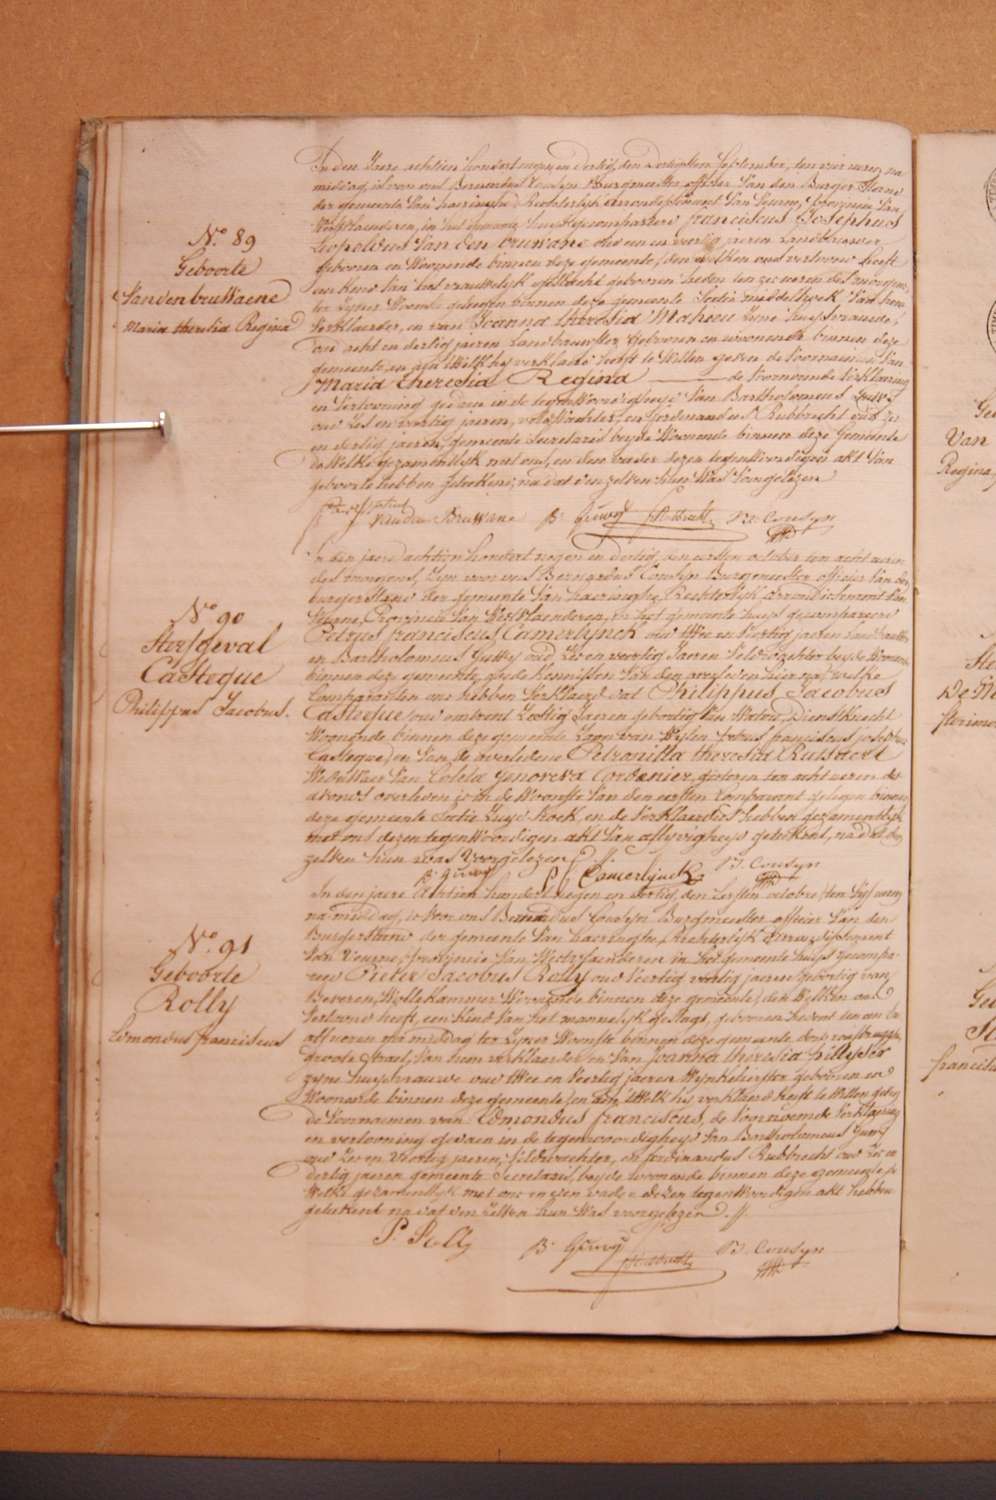 N.º 89
Geboorte
Vandenbruwaene
Maria theresia Regina
In den Jaere achtien hondert negen en dertig, den dertigsten September, ten vier uren na
middag, is voor ons Bernardus Cousyn Burgmeester officier van den Burger Stane
der gemeente van haeringhe Rechterlyk arrondissement van veurne, Provincie van
Westvlaenderen, in het gemeente huys gecompareert franciscus Josephus
Leopoldus Van den bruwane oud een en veertig jaeren Landbouwer,
geboren en Woonende binnen deze gemeente, den welken ons vertoont heeft
een kind van het vrouwelyk geslacht geboren heden ten zes uren des morgens
ter zyner Woonste gelegen binnen deze gemeente Sectie van hem
Verklaerder, en van Joanna theresia Maheu zyne huysvrouwe,
oud acht en dertig jaeren Landbouwster, geboren en woonende binnen deze
gemeente, en aen Welk hy verklaert heeft te Willen geven de voornaemen van
Maria theresia Regina de voornoemde verklaering
en vertooning gedaen in de tegenwoordigheyd van Bartholomeus Guwy
oud zes en veertig jaeren, veldwachter, en ferdinandus Rubbrecht oud zes
en dertig jaeren, gemeente secretaris beyde Woonende binnen deze Gemeente
de Welke gezamentlyk met ons, en den vader dezen tegenwoordigen akt van
geboorte hebben geteekent, na dat den zelven hun Was voorgelezen
vanden Bruwane B. Guwy f. Rubbrecht B. Cousyn
N.º 90
Sterfgeval
Casteque
Philippus Jacobus.
In den jaere achtien hondert negen en dertig, den eersten october ten acht uren
des morgens, zyn voor ons Bernardus Cousyn Burgmeester officier van den
burgerstane der gemeente van haeringhe, Rechterlyk arrondissement van
Veurne, Provincie van Westvlaenderen, in het gemeente huys gecompareert
Petrus franciscus Camerlynck oud twee en veertig jaeren Landbouwer
en Bartholomeus Guwy oud zes en veertig Jaeren Veldwachter beyde Woonende
binnen deze gemeente, goede kennissen van den overleden hier na, welke
Comparanten ons hebben verklaerd dat Philippus Jacobus
Casteque oud omtrent zestig Jaeren geboortig van Watou, Dienstknecht
Woonende binnen deze gemeente zoon van Wylen petrus franciscus josephus
Casteque, en van de overledene Petronilla theresia Ruissaert
Weduwaer van Coleta Genoveva Cordenier, gisteren ten acht uren des
avonds overleden is in de Woonste van den eersten Comparant gelegen binnen
deze gemeente Sectie Zuyd hoek en de verklaerders hebben gezamentlyk
met ons dezen tegenwoordigen akt van aflyvigheyd geteekent, na dat den
zelven hun was voorgelezen
B. Guwy P. f. Camerlynck B. Cousyn
N.º 91
Geboorte
Rolly
Edmondus franciscus
In den jaere achtien hondert negen en dertig, den zesden octobre, ten vyf uren
na middag, is voor ons Bernardus Cousyn Burgmeester officier van den
Burgerstane der gemeente van haeringhe, Rechterlyk arrondissement
van Veurne, provincie van Westvlaenderen in het gemeente huys gecompa-
reerd Pieter Jacobus Rolly oud veertig jaeren geboortig van
Beveren, Wolle Kammer Woonende binnen deze gemeente, den Welken ons
vertoont heeft, een kind van het mannelyk geslagt, geboren heden ten
uren na middag ter zyner Woonste binnen deze gemeente dorp rousbrugge,
groote straet, van hem verklaerder en van Joanna theresia
zyne huysvrouwe oud twee en veertig jaeren Wynkelierster geboren en
Woonende binnen deze gemeente, en aen Welk hy verklaerd heeft te Willen geven
de voornaemen van Edmondus franciscus, de voornoemde verklaering
en vertooning gedaen in de tegenwoordigheyd van Bartholomeus Guwy
oud zes en veertig jaeren, veldwachter, en ferdinandus Rubbrecht oud zes en
dertig jaeren gemeente Secretaris, beyde woonende binnen deze gemeente de
Welke gezamentlyk met ons en den vader dezen tegenwoordigen akt hebben
geteekent na dat den zelven hun Was voorgelezen.
P. Rolly B. Guwy f. Rubbrecht B. Cousyn
Van
Regina